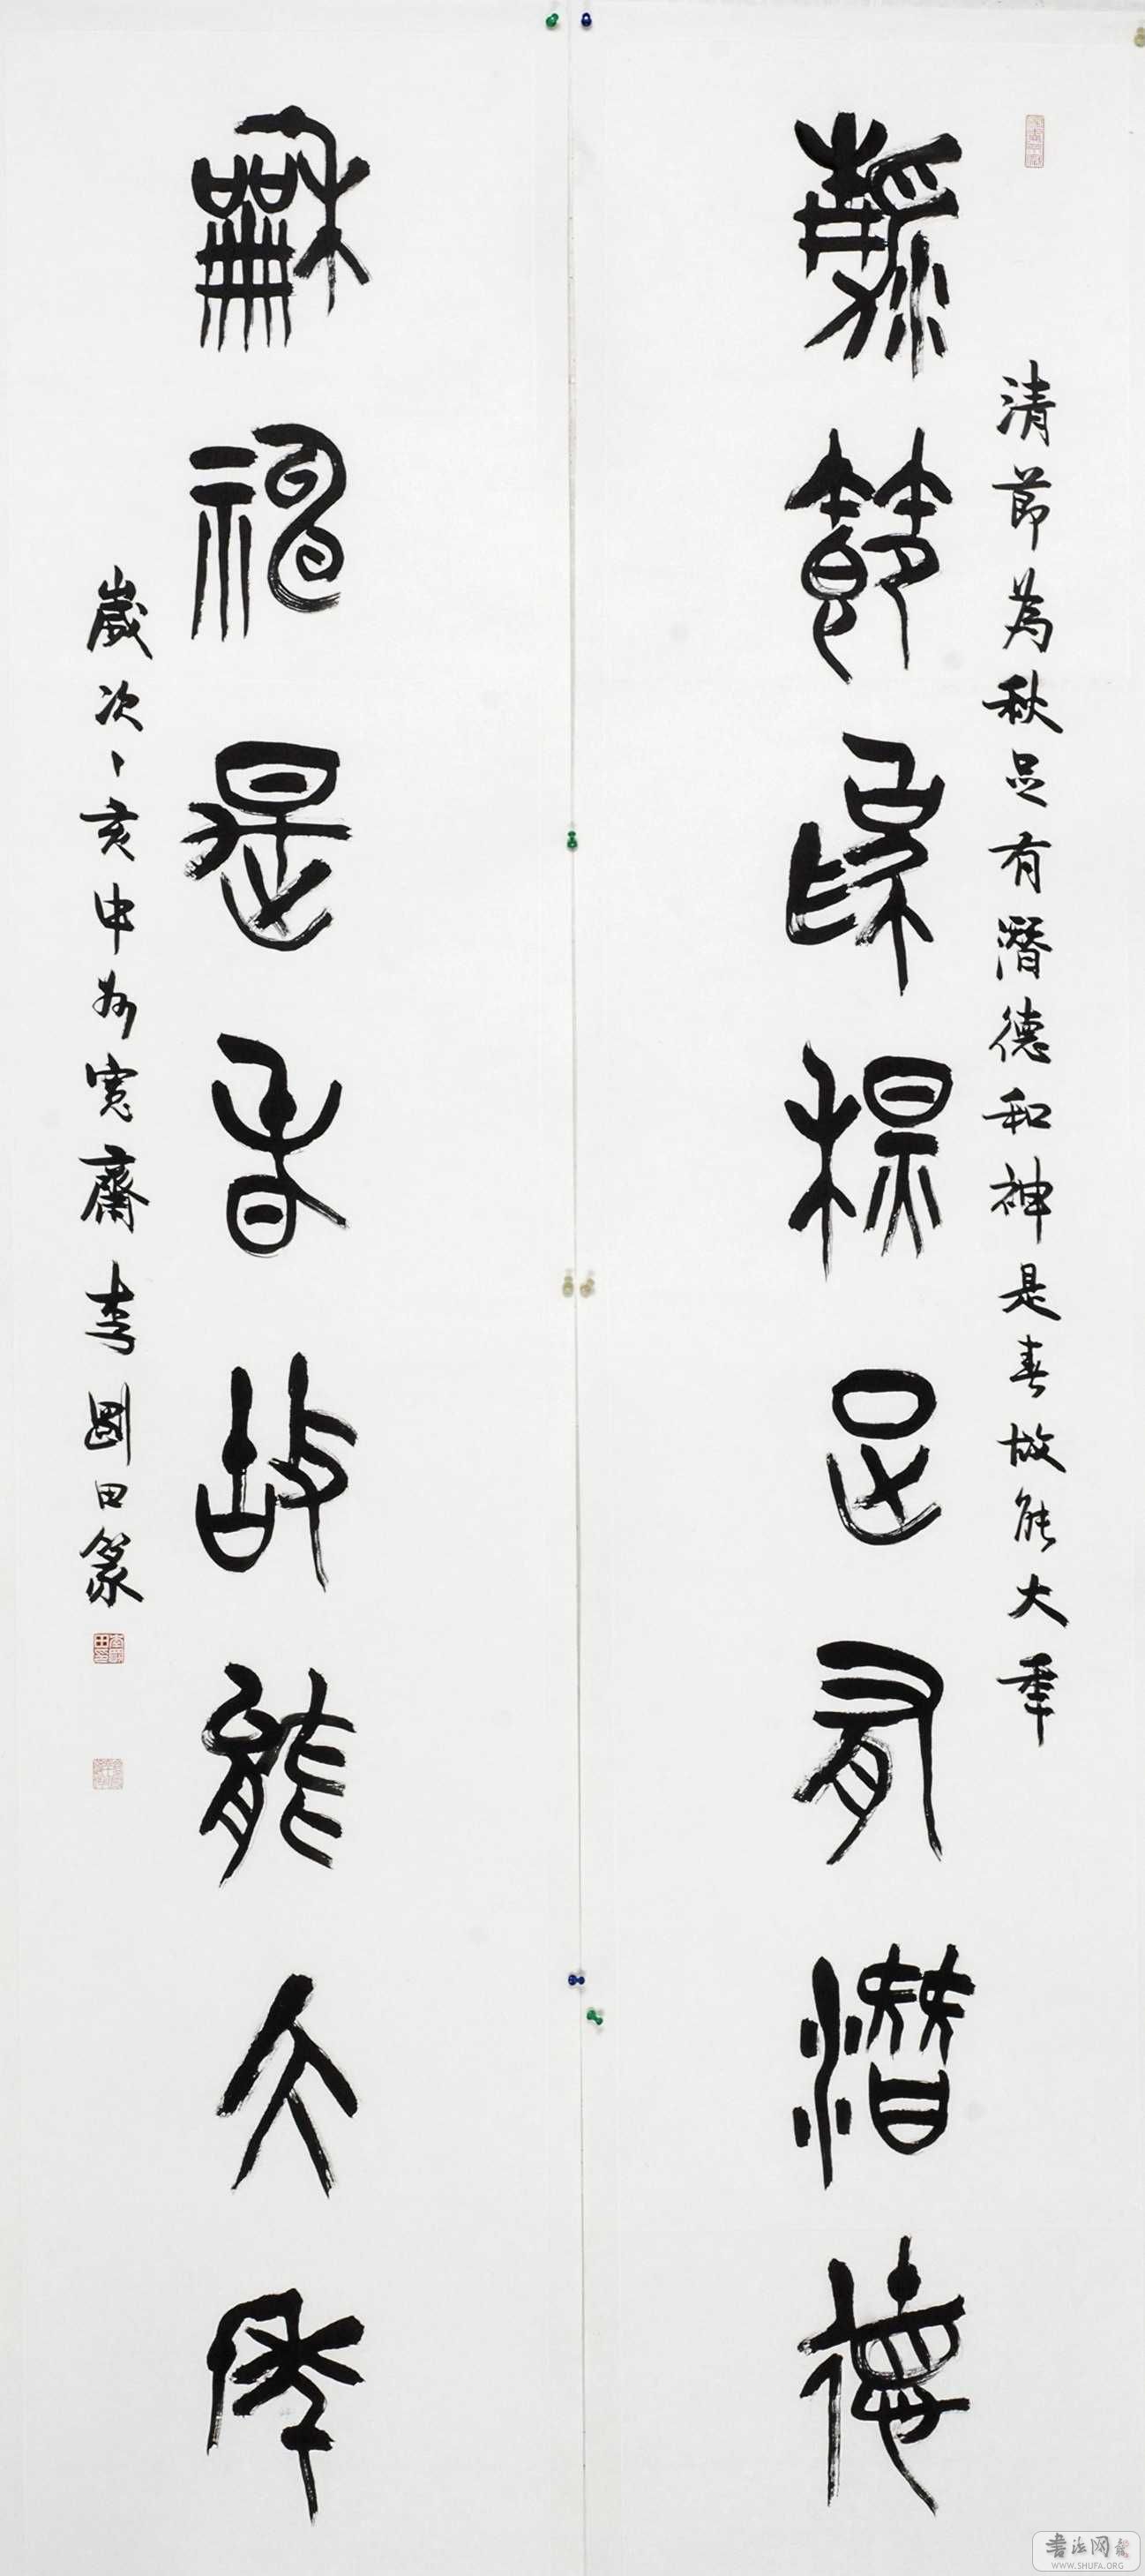 清節為秋足有潛德和神是春故能大年
瀞節為秋足有潛德
龢神是春故能大年
歲次乙亥中州寬齋李剛田篆
書法网
WWW.SHUFA.ORG